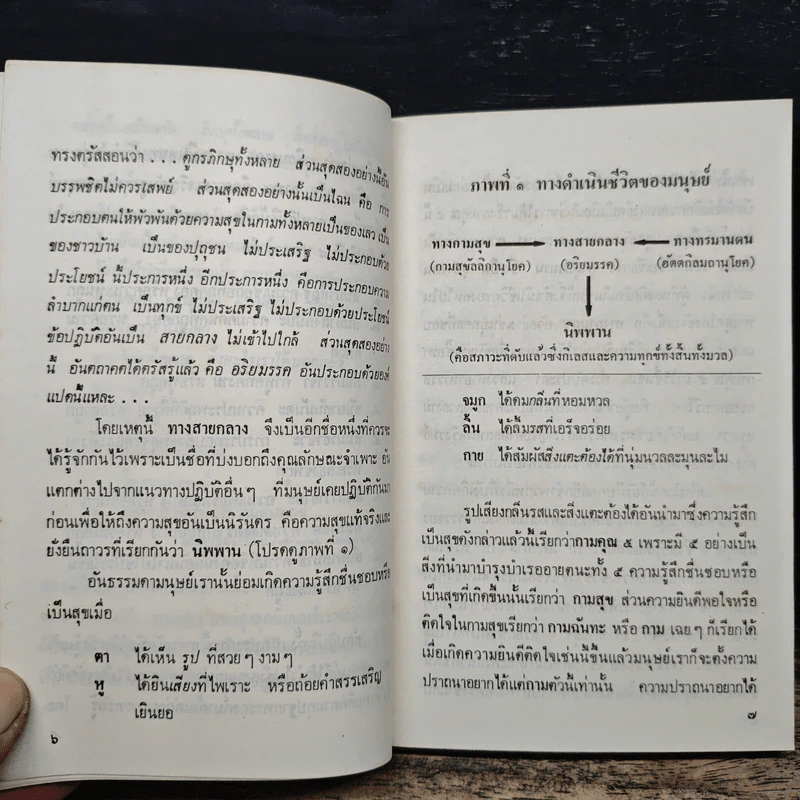 ทรงตรัสสอนว่า . . . ดูกรภิกษุทั้งหลาย ส่วนสุดสองอย่างนี้อัน
บรรพชิตไม่ควรเสพย์ ส่วนสุดสองอย่างนั้นเป็นไฉน คือ การ
ประกอบตนให้พัวพันด้วยความสุขในกามทั้งหลายเป็นของเลว เป็น
ของชาวบ้าน เป็นของปุถุชน ไม่ประเสริฐ ไม่ประกอบด้วย
ประโยชน์ นี้ประการหนึ่ง อีกประการหนึ่ง คือการประกอบความ
ลำบากแก่ตน เป็นทุกข์ ไม่ประเสริฐ ไม่ประกอบด้วยประโยชน์
ข้อปฏิบัติอันเป็น สายกลาง ไม่เข้าไปใกล้ ส่วนสุดสองอย่าง
นี้ อันตถาคตได้ตรัสรู้แล้ว คือ อริยมรรค อันประกอบด้วยองค์
แปดนี้แหละ . . .
โดยเหตุนี้ ทางสายกลาง จึงเป็นอีกชื่อหนึ่งที่ควรจะ
ได้รู้จักกันไว้เพราะเป็นชื่อที่บ่งบอกถึงคุณลักษณะจำเพาะ อัน
แตกต่างไปจากแนวทางปฏิบัติอื่นๆ ที่มนุษย์เคยปฏิบัติกันมา
ก่อนเพื่อให้ถึงความสุขอันเป็นนิรันดร คือความสุขแท้จริงและ
ยั่งยืนถาวรที่เรียกกันว่า นิพพาน (โปรดดูภาพที่ ๑)
อันธรรมดามนุษย์เรานั้นย่อมเกิดความรู้สึกชื่นชอบหรือ
เป็นสุขเมื่อ
ตา ได้เห็น รูป ที่สวยๆ งามๆ
หู ได้ยินเสียงที่ไพเราะ หรือถ้อยคำสรรเสริญ
เยินยอ
๖
ภาพที่ ๑ ทางดำเนินชีวิตของมนุษย์
ทางกามสุข ทางสายกลาง ทางทรมานตน
(กามสุขัลลิกานุโยค) (อริยมรรค) (อัตตกิลมถานุโยค)
นิพพาน
(คือสภาวะที่ดับแล้วซึ่งกิเลสและความทุกข์ทั้งสิ้นทั้งมวล)
จมูก ได้ดมกลิ่นที่หอมหวล
ลิ้น ได้ลิ้มรสที่เอร็จอร่อย
กาย ได้สัมผัสสิ่งแตะต้องได้ที่นุ่มนวลละมุนละไม
รูปเสียงกลิ่นรสและสิ่งแตะต้องได้อันนำมาซึ่งความรู้สึก
เป็นสุขดังกล่าวแล้วนี้เรียกว่ากามคุณ ๕ เพราะมี ๕ อย่างเป็น
สิ่งที่นำมาบำรุงบำเรออายตนะทั้ง ๕ ความรู้สึกชื่นชอบหรือ
เป็นสุขที่เกิดขึ้นนั้นเรียกว่า กามสุข ส่วนความยินดีพอใจหรือ
ติดใจในกามสุขเรียกว่า กามฉันทะ หรือ กาม เฉยๆ ก็เรียกได้
เมื่อเกิดความยินดีติดใจเช่นนี้ขึ้นแล้วมนุษย์เราก็จะตั้งความ
ปราถนาอยากได้แต่กามตัวนี้เท่านั้น ความปราถนาอยากได้
๗